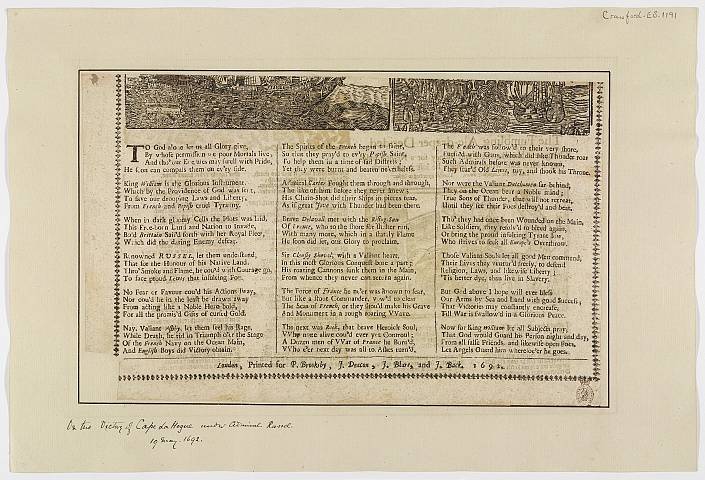 Crawford.EB.1191
TO God alone let us all Glory give,
By whose permission we poor Mortals live,
And tho' our Enemies may swell with Pride,
He soon can compass them on ev'ry side.
King William is the Glorious Instrument
Which by the Providence of God was sent,
To save our drooping Laws and Liberty,
From French and Popish cruel Tyranny.
When in dark gloomy Cells the Plots was Laid,
This Free-born Land and Nation to invade,
Bold Brittain Sail'd forth with her Royal Fleet,
Which did the daring Enemy defeat.
Renowned RUSSEL, let them understand,
That for the Honour of his Native Land.
Thro' Smoke and Flame, he cou'd with Courage go,
To face proud Lewis that insulting Foe.
No Fear or Favour cou'd his Actions sway,
Nor cou'd he in the least be drawn away
From acting like a Noble Hero bold,
For all the promis'd Gifts of cursed Gold.
Nay, Valiant Ashby, let them feel his Rage,
While Death, he rid in Triumph o'er the Stage
Of the French Navy on the Ocean Main,
And English Boys did Victory obtain.
The Spirits of the French began to faint,
So that they pray'd to ev'ry Popish Saint,
To help them in a time of sad Distress;
Yet they were burnt and beaten ne'ertheless.
Admiral Carter Fought them through and through,
The like of him before they never knew;
His Chain-Shot did their Ships in pieces tear,
As if great Jove with Thunder had been there.
Brave Delavall met with the Rising-Sun
Of France, who to the shore for shelter run,
With many more, which in a flashy Flame
He soon did set, our Glory to proclaim.
Sir Clously Shovel, with a Valiant heart,
In this most Glorious Conquest bore a part;
His roaring Cannons sunk them in the Main,
From whence they never can return again.
The Force of France he ne'er was known to fear,
But like a stout Commander, vow'd to clear
The Seas of French, or they should make his Grave
And Monument in a rough roaring VVave.
The next was Rook, that brave Heroick Soul,
VVho none alive cou'd ever yet Controul;
A Dozen men of VVar of France he Burn'd,
VVho e'er next day was all to Ashes turn'd,
The French was follow'd to their very shore,
Pursu'd with Guns, which did like Thunder roar
Such Admirals before was never known,
They scar'd Old Lewis, nay, and shook his Throne.
Nor were the Valiant Dutchmen far behind,
They on the Ocean bear a Noble mind;
True Sons of Thunder, that will not retreat,
Until they see their Foes destroy'd and beat.
Tho' they had once been Wounded on the Main,
Like Soldiers, they resolv'd to bleed again,
Or bring the proud insulting Tyrant low,
Who strives to seek all Europe's Overthrow.
Those Valiant Souls let all good Men commend,
Their Lives they ventur'd freely, to defend
Religion, Laws, and likewise Liberty;
'Tis better dye, than live in Slavery.
But God above I hope will ever bless
Our Arms by Sea and Land with good Success,
That Victories may constantly encrease,
Till War is swallow'd in a Glorious Peace.
Now for King William let all Subjects pray,
That God would Guard his Person night and day,
From all false Friends, and likewise open Foes,
Let Angels Guard him wheresoe'er he goes.
London, Printed for P. Brooksby, J. Deacon, J. Blare, and J. Back, 1692.
On the Victory of Cape La Hogue under Admiral Russel
19 May. 1692.